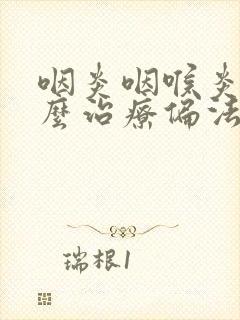 咽炎咽喉炎
麼治療偏法
瑞根1